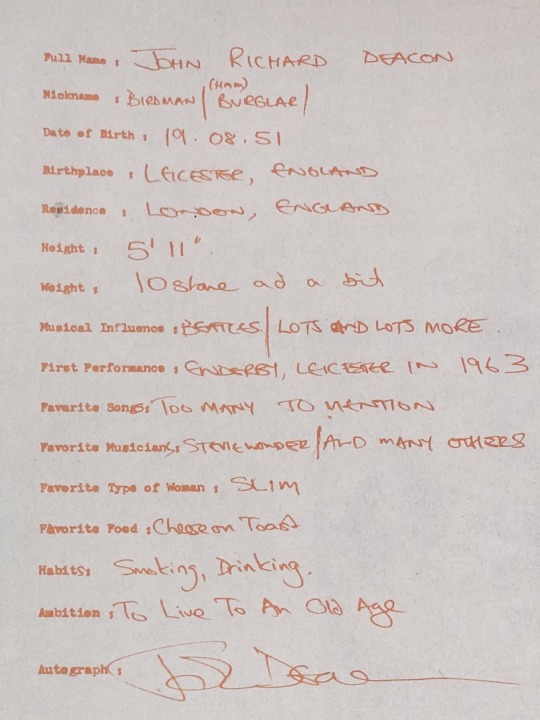 Full Name : JOHN RICHARD DEACON
(HAM)
Nickname : BIRDMAN / BURGLAR /
Date of Birth : 19.08.51
Birthplace : LEICESTER, ENGLAND
Residence : LONDON, ENGLAND
Height : 5' 11".
Weight : 10 stone ad a bit
Musical Influence : BEATLES / LOTS AND LOTS MORE.
First Performance : ENDERBY, LEICESTER IN 1963
Favorite Songs: TOO MANY TO MENTION
Favorite Musicians: STEVIE WONDER / AND MANY OTHERS
Favorite Type of Woman : SLIM
Favorite Food : Cheese on Toast
Habits: Smoking, Drinking.
Ambition : To Live To An Old Age
Autograph : John Deacon